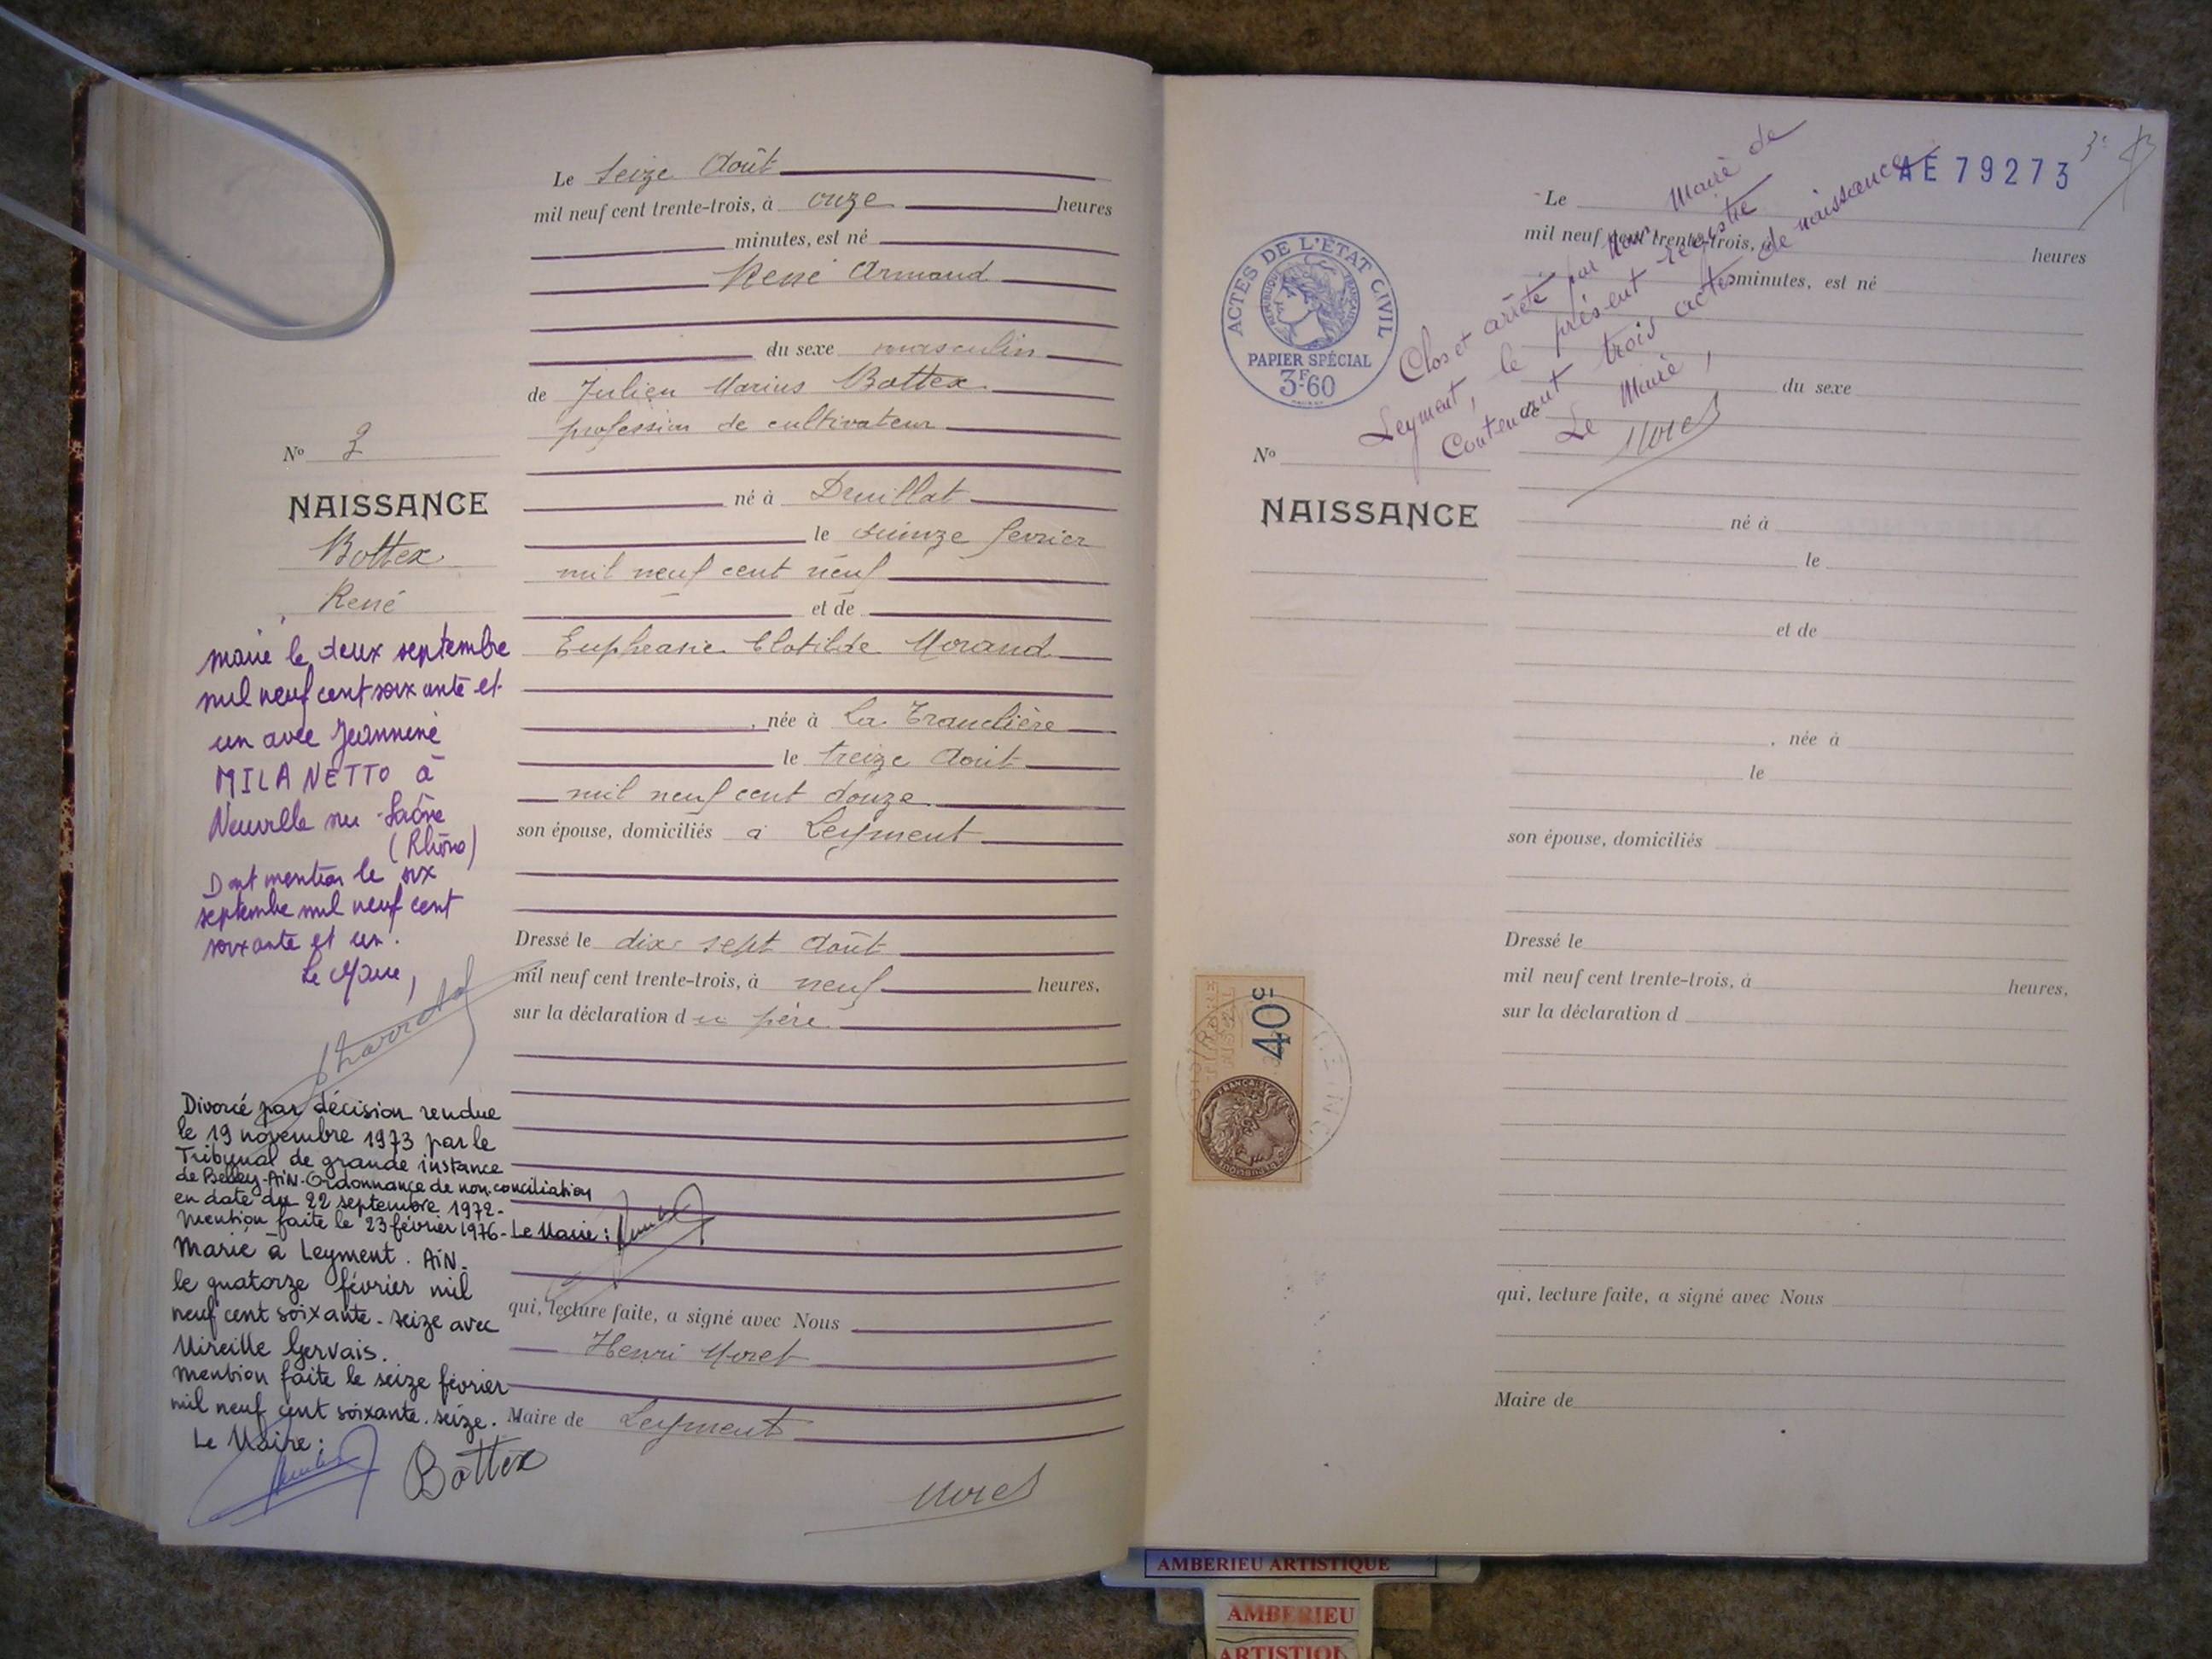 Le seize Août
mil neuf cent trente-trois, à onze heures
minutes, est né
René Armand
du sexe masculin
de Julien Marius Bottex
profession de cultivateur
né à Druillat
le quinze fevrier
mil neuf cent neuf
et de
Euphrasie Clotilde Morand
, née à La Tranclière
le treize Août
mil neuf cent douze
son épouse, domiciliés à Leyment
Dressé le dix sept Août
mil neuf cent trente-trois, à neuf heures,
sur la déclaration du père
qui, lecture faite, a signé avec Nous
Henri Moret
Maire de Leyment
Bottex
Moret
No 3
NAISSANCE
Bottex
René
marié le deux septembre
mil neuf cent soixante et
un avec Jeannine
MILANETTO à
Neuville sur Saône
(Rhône)
Dont mention le six
septembre mil neuf cent
soixante et un.
Le Maire,
Divorcé par décision rendue
le 19 novembre 1973 par le
Tribunal de grande instance
de Belley-AiN-Ordonnance de non-conciliation
en date du 22 septembre 1972-
Mention faite le 23 février 1976-Le Maire:
Marié à Leyment. AiN-
le quatorze février mil
neuf cent soixante-seize avec
Mireille Gervais.
Mention faite le seize février
mil neuf cent soixante.seize.
Le Maire:
AE 79273
3e
Clos et arrêté par Nous Maire de
Leyment, le présent registre
Contenant trois actes de naissance
Le Maire,
Moret
ACTES DE L'ÉTAT CIVIL
RÉPUBLIQUE FRANÇAISE
PAPIER SPÉCIAL
3F60
Le
mil neuf cent trente-trois, à heures
minutes, est né
du sexe
No
NAISSANCE
né à
le
et de
, née à
le
son épouse, domiciliés
Dressé le
mil neuf cent trente-trois, à heures,
sur la déclaration d
qui, lecture faite, a signé avec Nous
Maire de
40c
AMBERIEU ARTISTIQUE
AMBERIEU